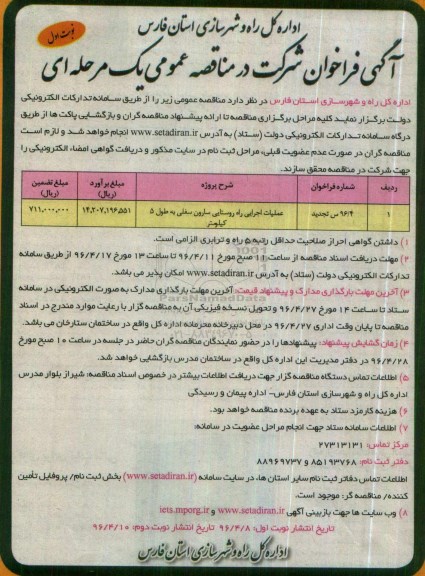 اداره کل راه و شهرسازی استان فارس
نوبت اول
آگهی فراخوان شرکت در مناقصه عمومی یک مرحله ای
اداره کل راه و شهرسازی استان فارس در نظر دارد مناقصه عمومی زیر را از طریق سامانه تدارکات الکترونیکی
دولت برگزار نماید کلیه مراحل برگزاری مناقصه تا ارائه پیشنهاد مناقصه گران و بازگشایی پاکت ها از طریق
درگاه سامانه تدارکات الکترونیکی دولت (ستاد) به آدرس www.setadiran.ir انجام خواهد شد و لازم است
مناقصه گران در صورت عدم عضویت قبلی، مراحل ثبت نام در سایت مذکور و دریافت گواهی امضاء الکترونیکی را
جهت شرکت در مناقصه محقق سازند.
ردیف شماره فراخوان شرح پروژه مبلغ برآورد (ریال) مبلغ تضمین (ریال)
۱ ۹۶/۴ س تجدید عملیات اجرایی راه روستایی سارون سفلی به طول ۵ کیلومتر ۱۴,۲۰۷,۱۹۶,۵۵۱ ۷۱۱,۰۰۰,۰۰۰
۱) داشتن گواهی احراز صلاحیت حداقل رتبه ۵ راه و ترابری الزامی است.
۲) مهلت دریافت اسناد مناقصه از ساعت ۱۱ صبح مورخ ۹۶/۴/۱۱ تا ساعت ۱۳ مورخ ۹۶/۴/۱۷ از طریق سامانه
تدارکات الکترونیکی دولت (ستاد) به آدرس www.setadiran.ir امکان پذیر می باشد.
۳) آخرین مهلت بارگذاری مدارک و پیشنهاد قیمت: آخرین مهلت بارگذاری مدارک به صورت الکترونیکی در سامانه
ستاد تا ساعت ۱۴ مورخ ۹۶/۴/۲۷ و تحویل نسخه فیزیکی آن به مناقصه گزار با رعایت موارد مندرج در اسناد
مناقصه تا پایان وقت اداری ۹۶/۴/۲۷ در محل دبیرخانه محرمانه اداره کل واقع در ساختمان ستارخان می باشد.
۴) زمان گشایش پیشنهاد: پیشنهادها را در حضور نمایندگان مناقصه گران حاضر در جلسه در ساعت ۱۰ صبح مورخ
۹۶/۴/۲۸ در دفتر مدیریت این اداره کل واقع در ساختمان مدرس بازگشایی خواهد شد.
۵) اطلاعات تماس دستگاه مناقصه گزار جهت دریافت اطلاعات بیشتر در خصوص اسناد مناقصه: شیراز بلوار مدرس
اداره کل راه و شهرسازی استان فارس- اداره پیمان و رسیدگی
۶) هزینه کارمزد ستاد به عهده برنده مناقصه خواهد بود.
۷) اطلاعات سامانه ستاد جهت انجام مراحل عضویت در سامانه:
مرکز تماس: ۲۷۳۱۳۱۳۱
دفتر ثبت نام: ۸۵۱۹۳۷۶۸ و ۸۸۹۶۹۷۳۷
اطلاعات تماس دفاتر ثبت نام سایر استان ها، در سایت سامانه (www.setadiran.ir) بخش ثبت نام/ پروفایل تأمین
کننده/ مناقصه گر: موجود است.
۸) وب سایت ها جهت بازبینی آگهی www.setadiran.ir و iets.mporg.ir
تاریخ انتشار نوبت اول: ۹۶/۴/۸ تاریخ انتشار نوبت دوم: ۹۶/۴/۱۰
اداره کل راه و شهرسازی استان فارس